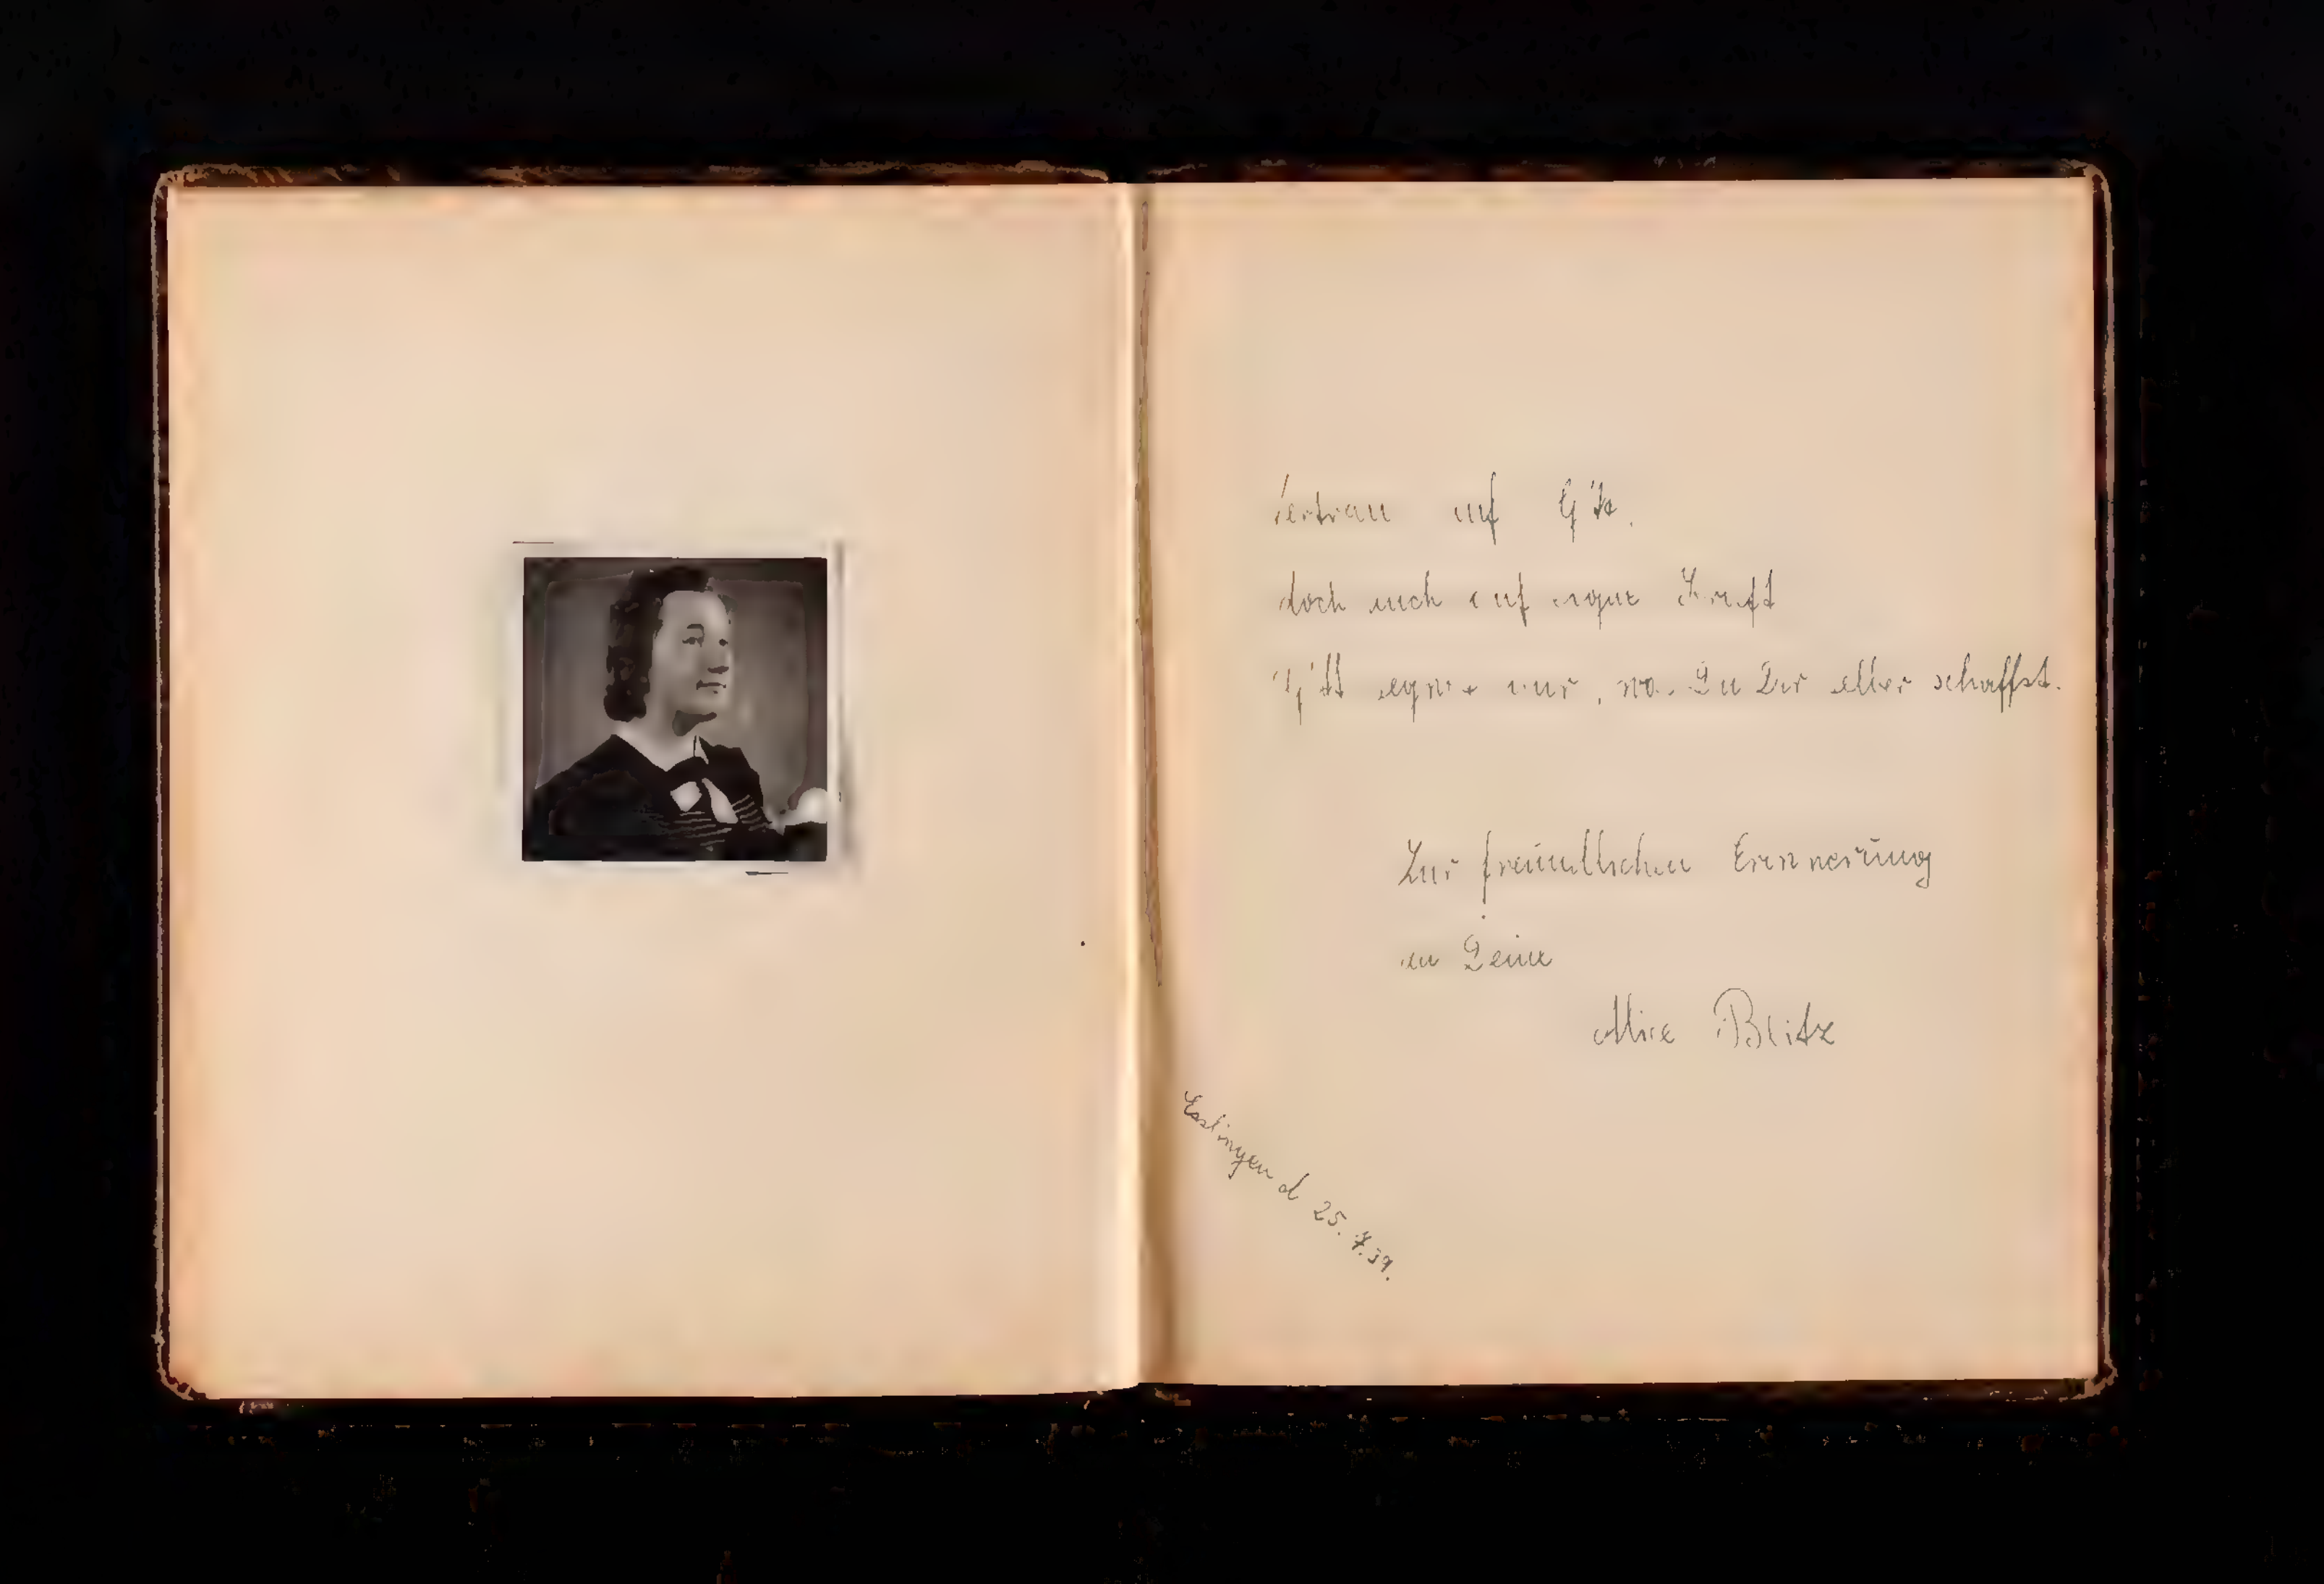 Vertrau auf Gott,
doch auch auf eigne Kraft
Gott segnet nur, was Du Dir selber schaffst.
Zur freundlichen Erinnerung
an Deine
Alice Blitz
d 25. 7. 39.